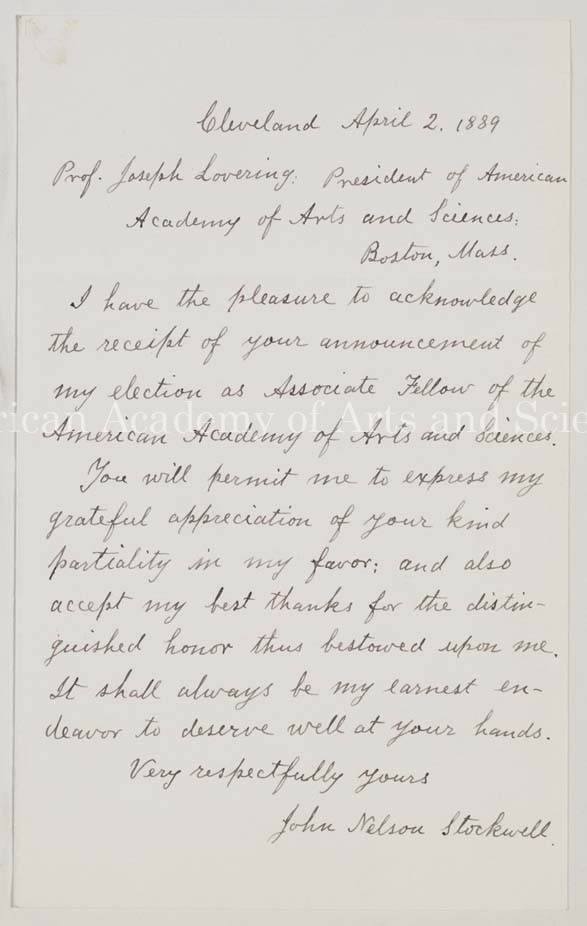 Cleveland April 2. 1889
Prof. Joseph Lovering: President of American
Academy of Arts and Sciences:
Boston, Mass.
I have the pleasure to acknowledge
the receipt of your announcement of
my election as Associate Fellow of the
rican Academy of Arts and Scie
American Academy of Arts and Sciences.
You will permit me to express my
grateful appreciation of your kind
partiality in my favor; and also
accept my best thanks for the distin-
guished honor thus bestowed upon me.
It shall always be my earnest en-
deavor to deserve well at your hands.
Very respectfully yours
John Nelson Stockwell.